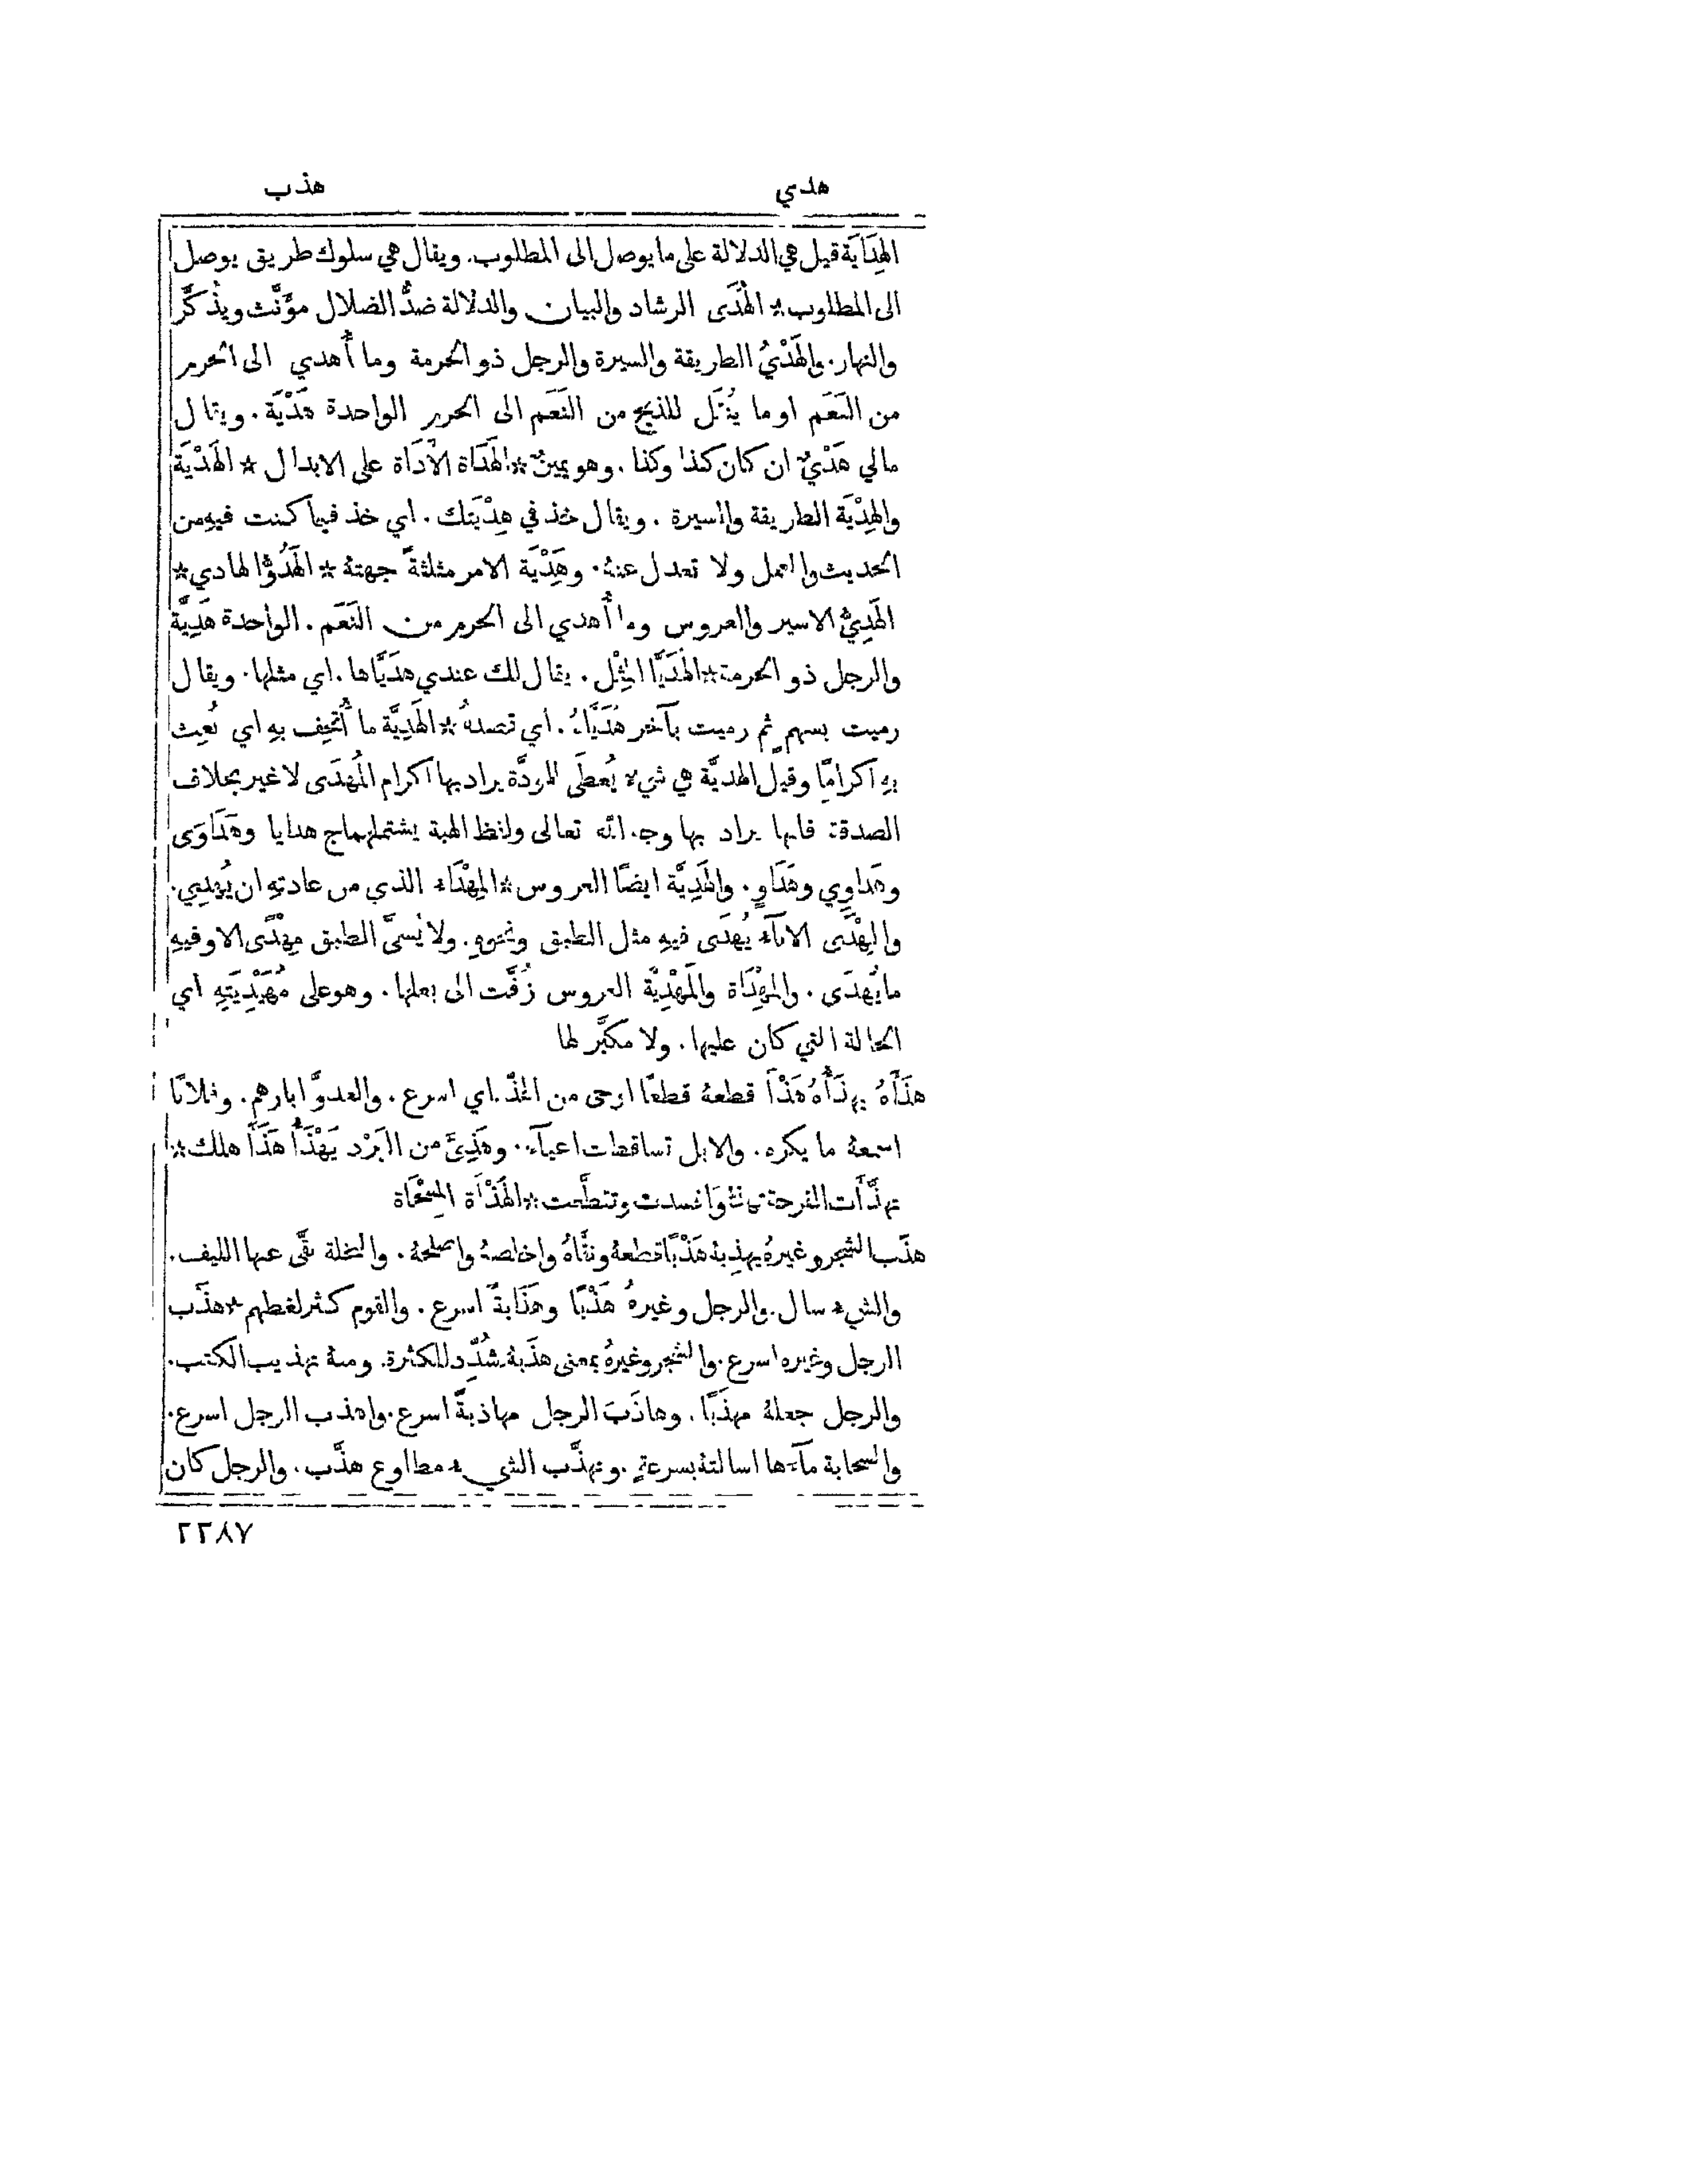 هدي
هذب
الهِدَايَة قيل هي الدلالة على ما يوصل الى المطلوب. ويقال هي سلوك طريق يوصل
الى المطلوب * الهُدَى الرشاد والبيان والدلالة ضدُّ الضلال مؤَنَّث ويذُكَّر
والنهار. والهَدْيُ الطريقة والسيرة والرجل ذو الحرمة وما أُهدي الى الحرم
من النَعَم او ما يُنقَل للذبح من النَعَم الى الحرم الواحدة هَدْيَة. ويقال
مالي هَدْيٌ ان كان كذا وكذا. وهو يمينٌ * الهَدَاة الأَدَاة على الابدال * الهَدْيَة
والهِدْيَة الطريقة والسيرة. ويقال خذ في هِدْيَتك. اي خذ فيما كنت فيهِ من
الحديث والعمل ولا تعدل عنهُ. وهَِدْيَة الامر مثلثةً جهتهُ * الهَدُوُّ الهادي *
الهَدِيُّ الاسير والعروس وما أُهدي الى الحرم من النَعَم. الواحدة هَدِيَّة
والرجل ذو الحرمة * الهُدَيَّا المِثْل. يقال لك عندي هُدَيَّاها. اي مثلها. ويقال
رميت بسهمٍ ثم رميت بآخر هُدَيَّاهُ. اي قصدهُ * الهَدِيَّة ما أُتحِف بهِ اي بُعِث
بهِ اكرامًا وقيل الهديَّة هي شيءٌ يُعطَى للمودَّة يراد بها اكرام المُهدَى لا غير بخلاف
الصدقة فانها يراد بها وجه الله تعالى ولفظ الهبة يشتملهما ج هدايا وهَدَاوَى
وهَداوِي وهَدَاوٍ. والهَدِيَّة ايضًا العروس * المِهْدَاء الذي من عادتهِ ان يُهدِي.
والمِهْدَى الاناۤء يُهدَى فيهِ مثل الطبق ونحوهِ. ولا يُسمَّى الطبق مِهْدًى الا وفيهِ
ما يُهدَى. والمِهْدَاة والمَهْدِيَّة العروس زُفَّت الى بعلها. وهو على مُهَيْدِيَتِهِ اي
الحالة التي كان عليها. ولا مكبَّر لها
هَذَأَهُ يهذَأُهُ هَذْأً قطعهُ قطعًا اوحى من الهَذّ. اي اسرع. والعدوَّ ابارهم. وفلانًا
اسمعهُ ما يكره. والابل تساقطت اعياۤءً. وهَذِئَ من البَرْد يَهْذَأُ هَذَأً هلك *
تهذَّأَت القرحة تهذُّؤًا فسدت وتقطَّعت * الهَذْأَة المِسْحَاة
هذَب الشجر وغيرهُ يهذِبهُ هَذْبًا قطعهُ ونقَّاهُ واخلصهُ واصلحهُ. والنخلة نقَّى عنها الليف.
والشيءُ سال. والرجل وغيرهُ هَذْبًا وهَذَابةً اسرع. والقوم كثر لغطهم * هذَّب
الرجل وغيره اسرع. والشجر وغيرهُ بمعنى هذَبهُ شُدِّد للكثرة. ومنهُ تهذيب الكتب.
والرجل جعلهُ مهذَّبًا. وهاذَبَ الرجل مهاذبةً اسرع. واهذب الرجل اسرع.
والسحابة ماۤءها اسالتهُ بسرعةٍ. وتهذَّب الشيءُ مطاوع هذَّب. والرجل كان
٢٢٨٧